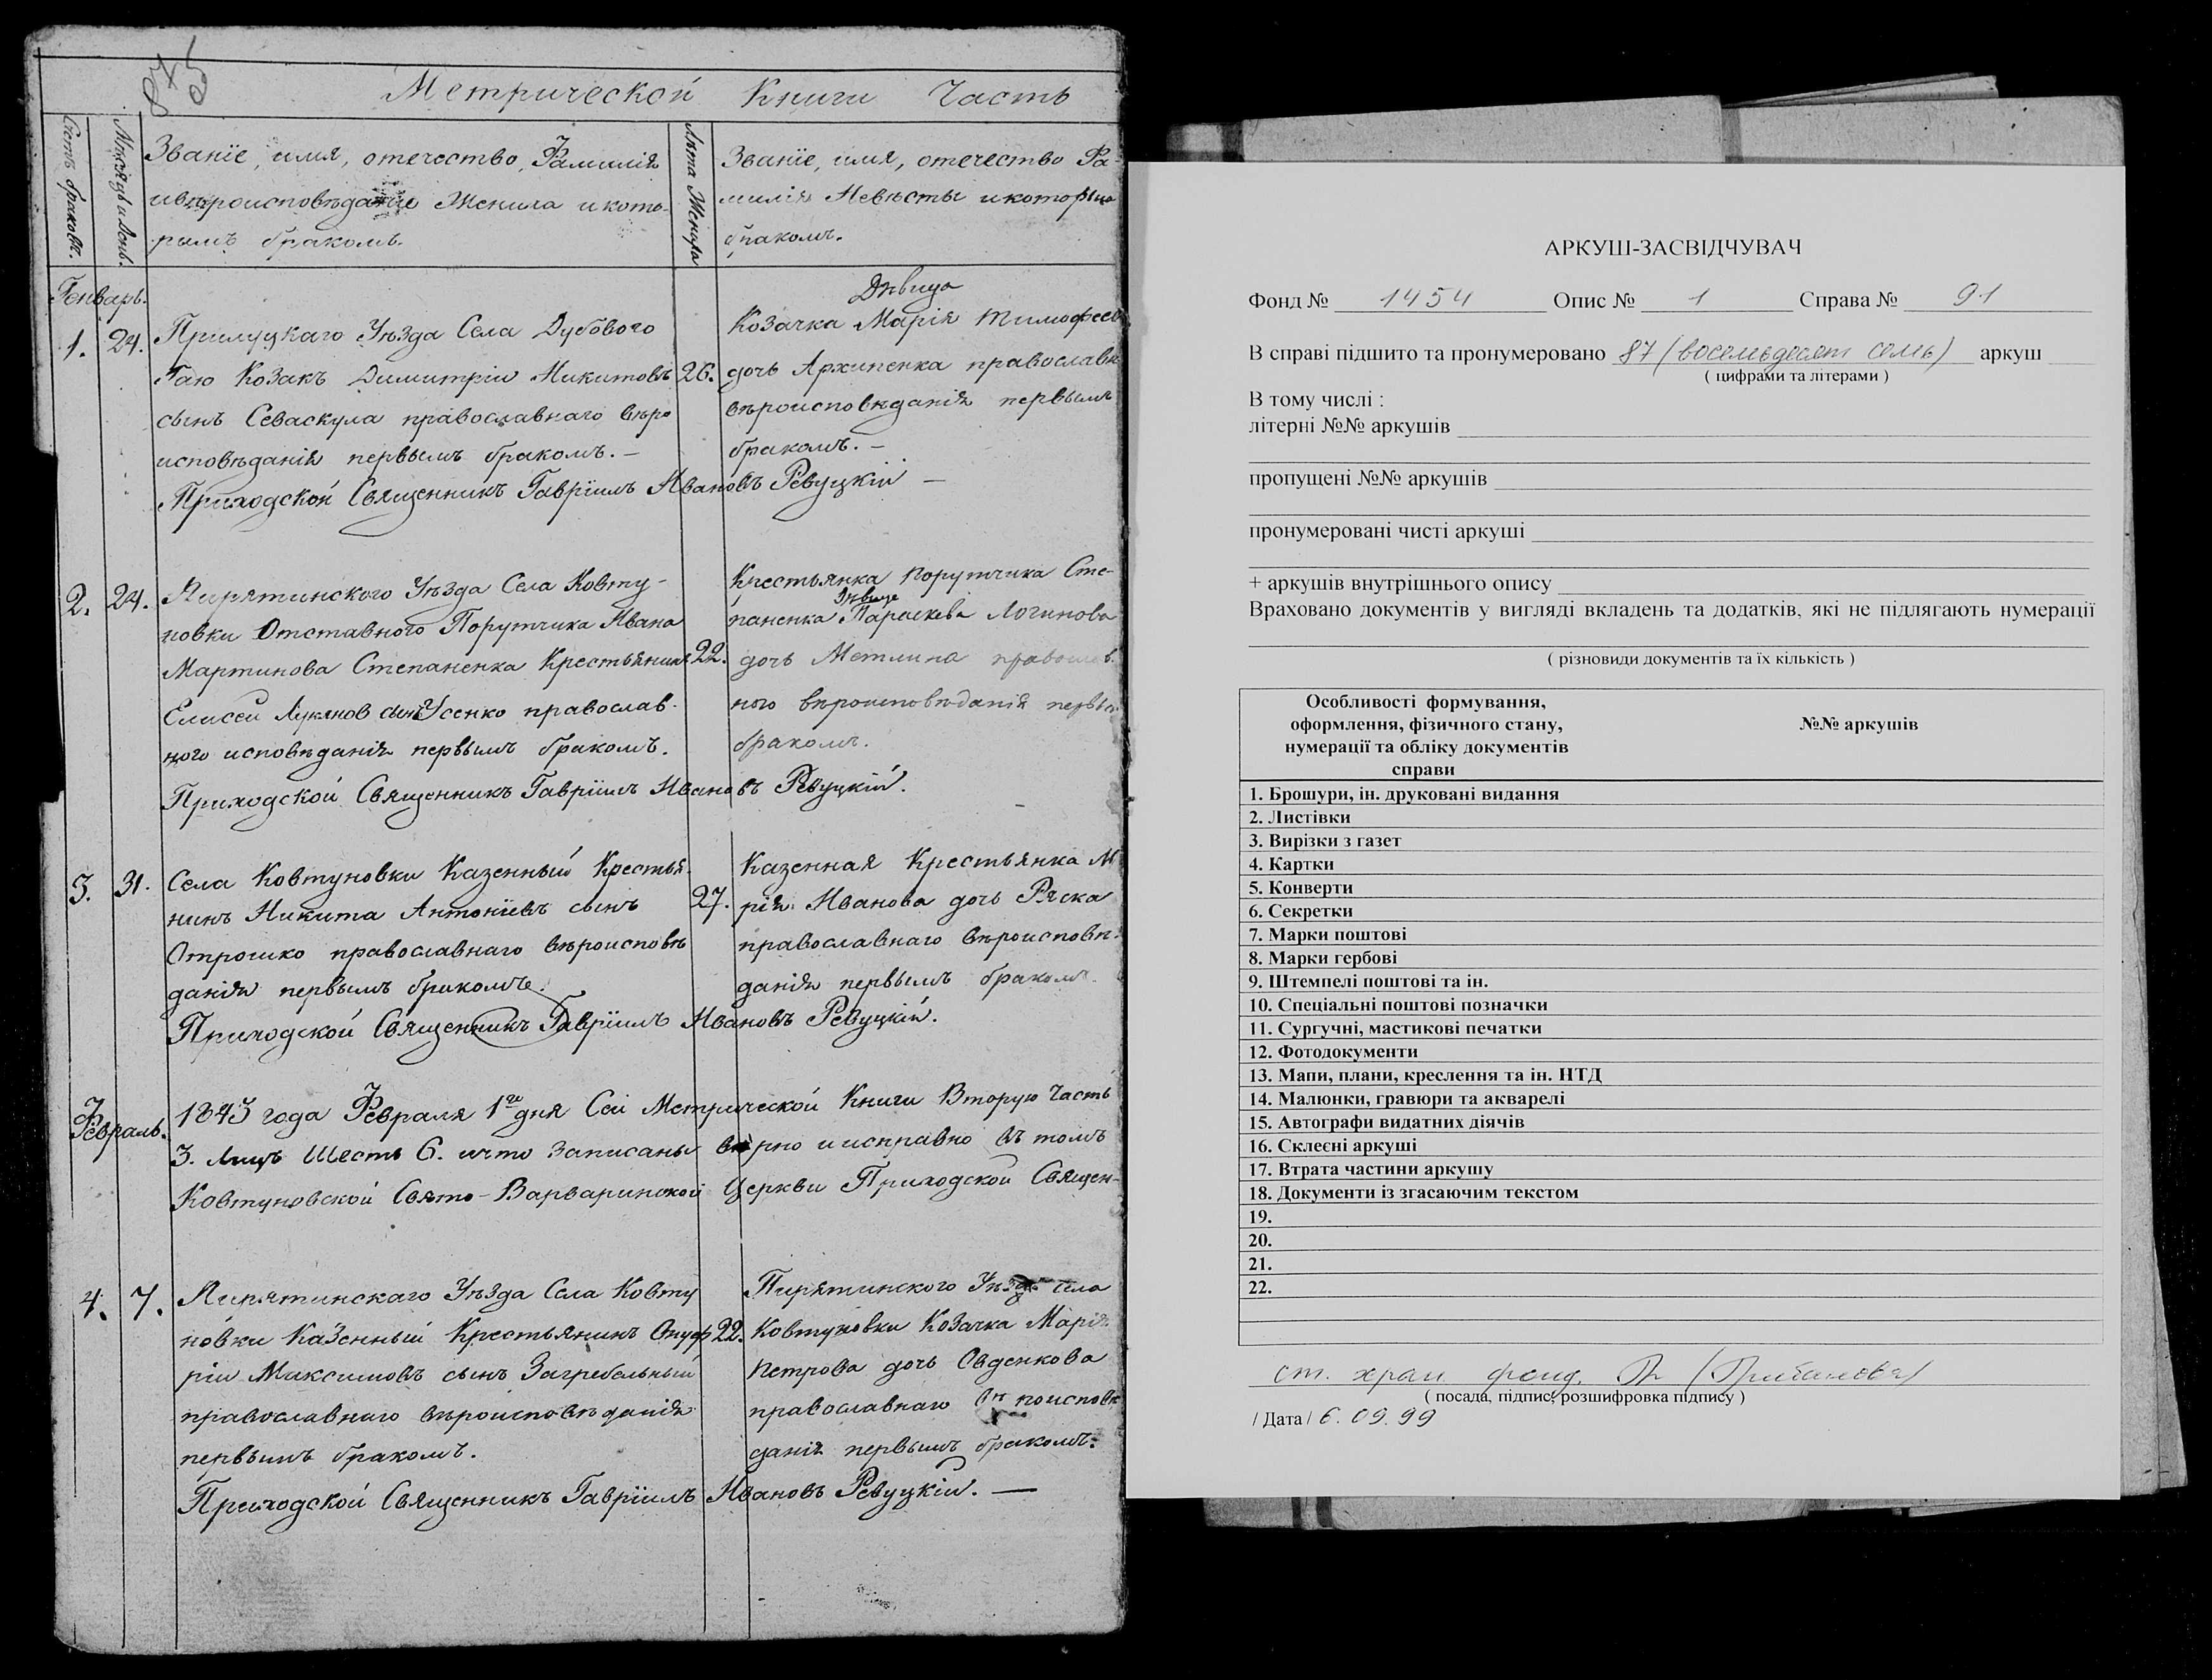 875
Метрической Книги Часть
Счетъ браковъ.
Мѣсяцъ и день.
Званїе, имя, отечество, Фамилія
ивѣроисповѣданіе Жениха икото-
рымъ бракомъ.
Лѣта Жениха
Званїе, имя, отечество Фа-
милія Невѣсты икоторымъ
бракомъ.
Генварь.
1. 24.
Прилуцкаго Уѣзда Села Дубового
Гаю Козакъ Димитрій Никитовъ
сынъ Севаскула православнаго вѣро
исповѣданія первымъ бракомъ. –
26.
Дѣвица
Козачка Марія Тимофеев
дочь Архипенка православн
вѣроисповѣданія первымъ
бракомъ. –
Приходской Священникъ Гаврїилъ Ивановъ Ревуцкій –
2. 24.
Пирятинского Уѣзда Села Ковту-
новки Отставного Порутчика Ивана
Мартинова Степаненка Крестьянинъ
Елисей Лукянов сынъ Усенко православ-
ного исповѣданія первымъ бракомъ.
22.
Крестьянка Порутчика Сте-
паненка Дѣвица Параскева Логинова
дочь Метлина православ.
ного вѣроисповѣданія первы
бракомъ.
Приходской Священникъ Гаврїилъ Ивановъ Ревуцкій.
3. 31.
Села Ковтуновки Казенный Крестья
нинъ Никита Антонїевъ сынъ
Отрошко православнаго вѣроисповѣ
данія первымъ бракомъ.
27.
Казенная Крестьянка М
рія Иванова дочь Ряска
православнаго вѣроисповѣ-
данія первымъ бракомъ.
Приходской Священникъ Гаврїилъ Ивановъ Ревуцкій.
Февраль.
1843 года Февраля 1го дня Сей Метрической Книги Вторую Часть
3. Лицъ Шесть 6. ичто записаны вѣрно иисправно въ томъ
Ковтуновской Свято-Варваринской Церкви Приходской Священ-
4. 7.
Пирятинскаго Уѣзда Села Ковту
новки Казенный Крестьянинъ Онуф
рій Максимовъ сынъ Загребельный
православнаго вѣроисповѣданія
первымъ бракомъ.
22.
Пирятинского Уѣзда села
Ковтуновки Козачка Марія
Петрова дочь Овденкова
православнаго вѣроисповѣ
данія первымъ бракомъ.
Приходской Священникъ Гаврїилъ Ивановъ Ревуцкій. —
АРКУШ-ЗАСВІДЧУВАЧ
Фонд № 1454 Опис № 1 Справа № 91
В справі підшито та пронумеровано 87 (восемьдесят семь) аркуш
( цифрами та літерами )
В тому числі :
літерні №№ аркушів
пропущені №№ аркушів
пронумеровані чисті аркуші
+ аркушів внутрішнього опису
Враховано документів у вигляді вкладень та додатків, які не підлягають нумерації
( різновиди документів та їх кількість )
Особливості формування,
оформлення, фізичного стану,
нумерації та обліку документів
справи
№№ аркушів
1. Брошури, ін. друковані видання
2. Листівки
3. Вирізки з газет
4. Картки
5. Конверти
6. Секретки
7. Марки поштові
8. Марки гербові
9. Штемпелі поштові та ін.
10. Спеціальні поштові позначки
11. Сургучні, мастикові печатки
12. Фотодокументи
13. Мапи, плани, креслення та ін. НТД
14. Малюнки, гравюри та акварелі
15. Автографи видатних діячів
16. Склеєні аркуші
17. Втрата частини аркушу
18. Документи із згасаючим текстом
19.
20.
21.
22.
ст. хран. фонд.
( посада, підпис, розшифровка підпису )
/ Дата / 6. 09. 99